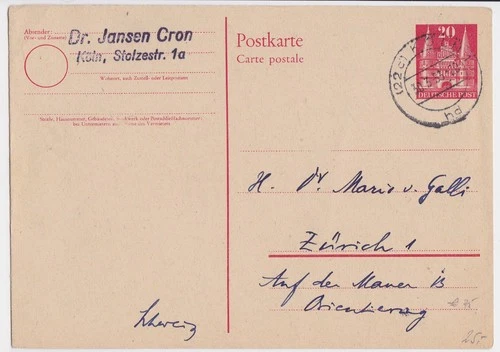 Absender:
(Vor- und Zuname)
Dr. Jansen Cron
Köln, Stolzestr. 1a
Wohnort, auch Zustell- oder Leitpostamt
Straße, Hausnummer, Gebäudeteil, Stockwerk oder Postschließfachnummer;
Postkarte
Carte postale
20
DEUTSCHE POST
(22c) K
bd
H. Dr. Mario v. Galli
Zürich 1
Auf der Mauer 13
Orientierung
Schweiz
25.-